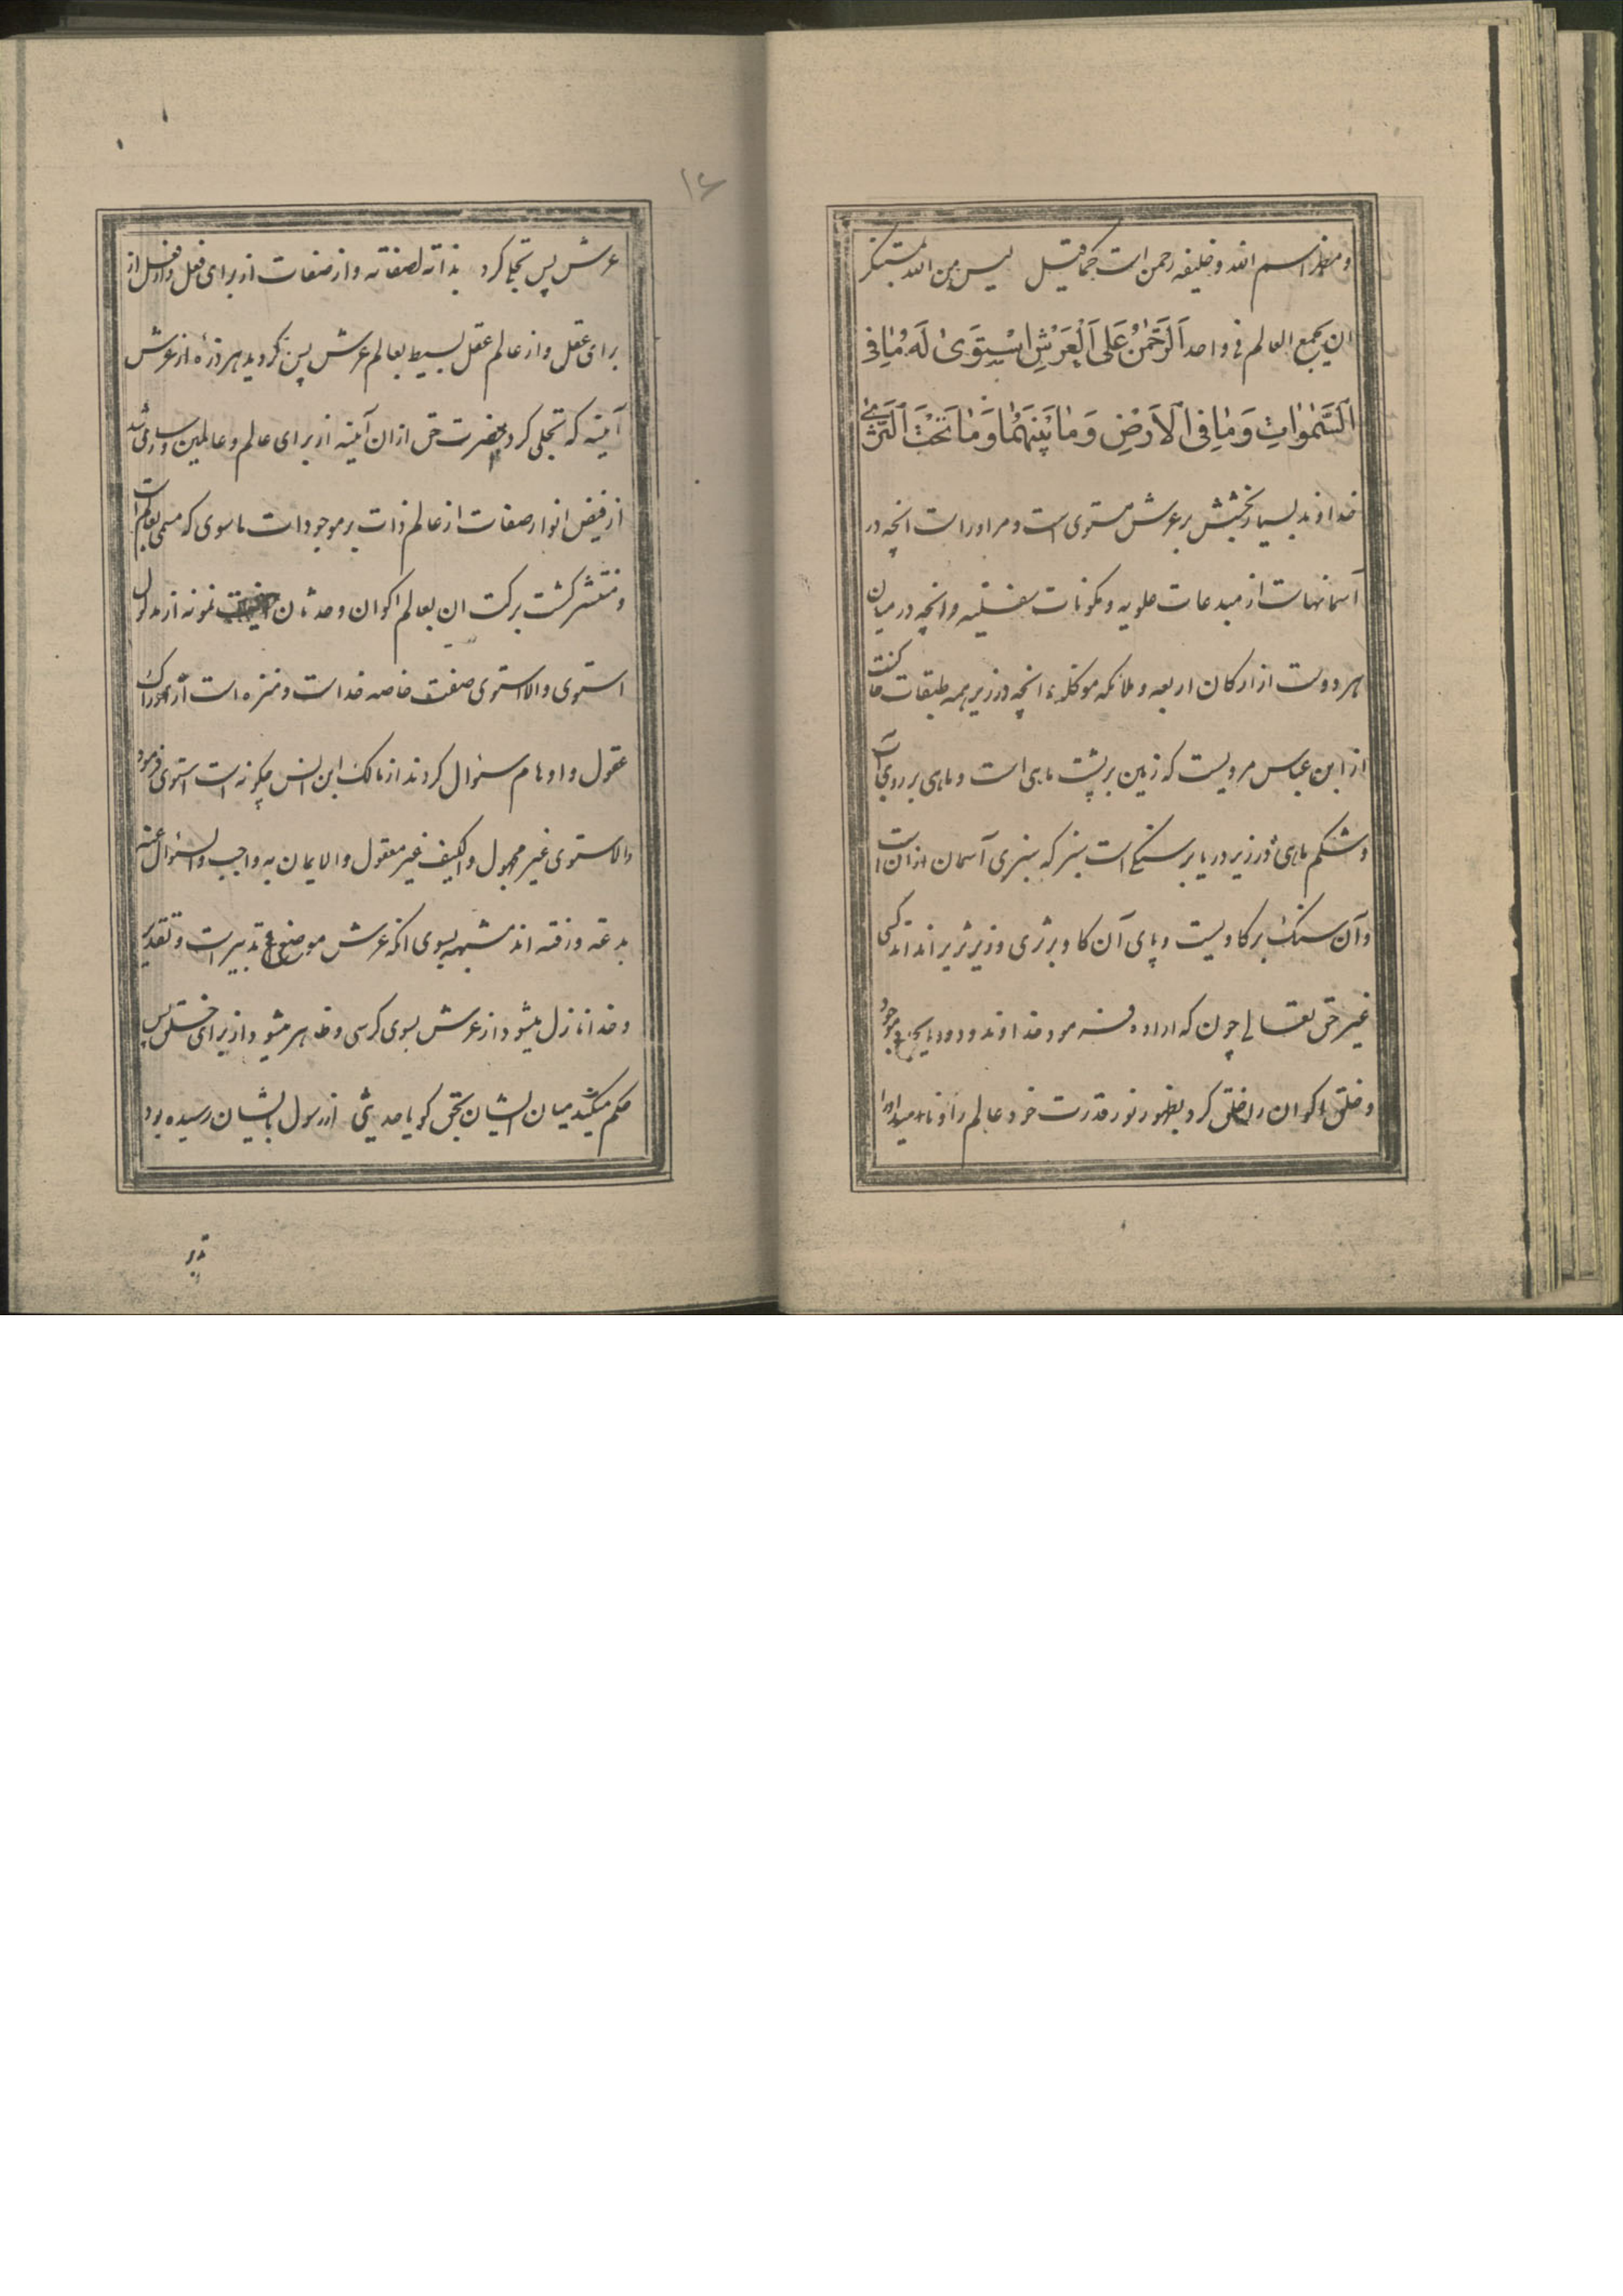 ومظهر اسم الله وخلیفه رحمن است کما قیل لیس من الله بمستنکر
ان یجمع العالم فی واحد اَلرَّحْمٰنُ عَلَی اَلْعَرْشِ اسْتَوَیٰ لَهُ مٰا فِی
اَلسَّمٰوٰاتِ وَمٰا فِی اَلاَرْضِ وَمٰا بَیْنَهُمٰا وَمٰا تَحْتَ اَلثَّرَیٰ
خداوند بسیار بخشش بر عرش مستوی است ومر اوراست انچه در
آسمانهاست از مبدعات علویه ومکونات سفلیه وانچه در میان
هر دوست از ارکان اربعه وملائکه موکله وانچه در زیر همه طبقات
از ابن عباس مرویست که زمین بر پشت ماهی است وماهی بر روی آب
وشکم ماهی در زیر دریا بر سنگی است سبز که سبزی آسمان ازان است
وآن سنک بر کاویست وپای آن کاو بر ثری وزیر ثری را نداند کسی
غیر حق تعالی چون که اراده فرمود خداوند ودود بایجاد موجود
وخلق اکوان را خلق کرد بظهور نور قدرت خود عالم را
عرش پس تجلی کرد بذاته لصفاته واز صفات از برای فعل واز فعل از
برای عقل واز عالم عقل بسیط بعالم عرش پس کردید هر ذرهٔ از عرش
آینه که تجلی کرد حضرت حق ازان آینه از برای عالم وعالمین
از فیض انوار صفات از عالم ذات بر موجودات ماسوی که مسمی بعالم است
ومنتشر کشت برکت ان بعالم اکوان وحدثان نمونه از مدلول
استوی والاستوی صفت خاصه خداست ومنزه است از ادراک
عقول واوهام سئوال کردند از مالک ابن انس چکونه است استوی فرمود
والاستوی غیر مجهول والکیف غیر معقول والایمان به واجب والسئوال عنه
بدعة ورفته اند مشبهه بسوی انکه عرش موضوع تدبیر است وتقدیر
وخدا نازل میشود از عرش بسوی کرسی وظاهر میشود از برای خلق پس
حکم میکند میان ایشان بحق کویا حدیثی از رسول بایشان رسیده بود